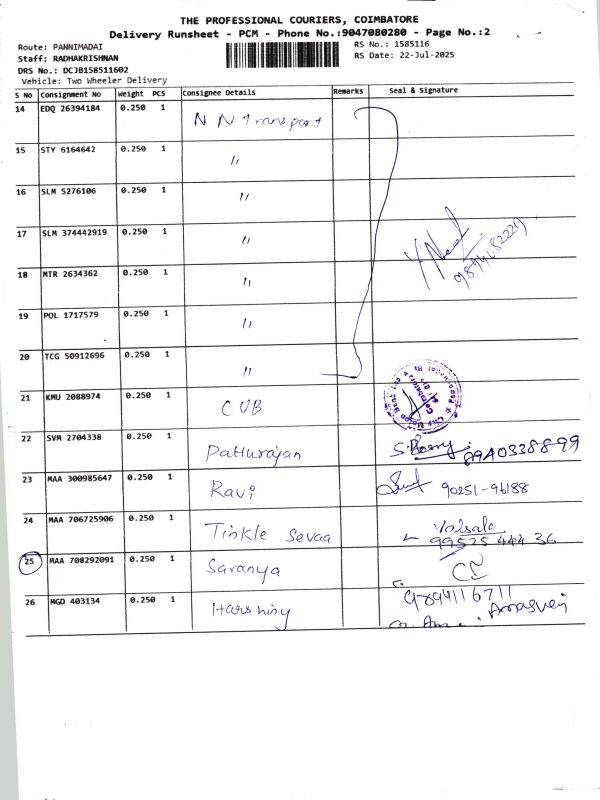 THE PROFESSIONAL COURIERS, COIMBATORE
Delivery Runsheet - PCM - Phone No.:9047080280 - Page No.:2
Route: PANNIMADAI
RS No.: 1585116
Staff: RADHAKRISHNAN
RS Date: 22-Jul-2025
DRS No.: DCJB158511602
Vehicle: Two Wheeler Delivery
S No Consignment No Weight PCS Consignee Details Remarks Seal & Signature
14 EDQ 26394184 0.250 1 N N Transport
15 STY 6164642 0.250 1 〃
16 SLM 5276106 0.250 1 〃
17 SLM 374442919 0.250 1 〃
18 MTR 2634362 0.250 1 〃
19 POL 1717579 0.250 1 〃
20 TCG 50912696 0.250 1 〃
21 KMU 2088974 0.250 1 CUB
22 SVM 2704338 0.250 1 Patturajan
23 MAA 300985647 0.250 1 Ravi 90251-96188
24 MAA 706725906 0.250 1 Tinkle Sevaa Valsala
99525 444 36
25 MAA 708292091 0.250 1 Saranya
26 MGD 403134 0.250 1 Harshiny 9894116711